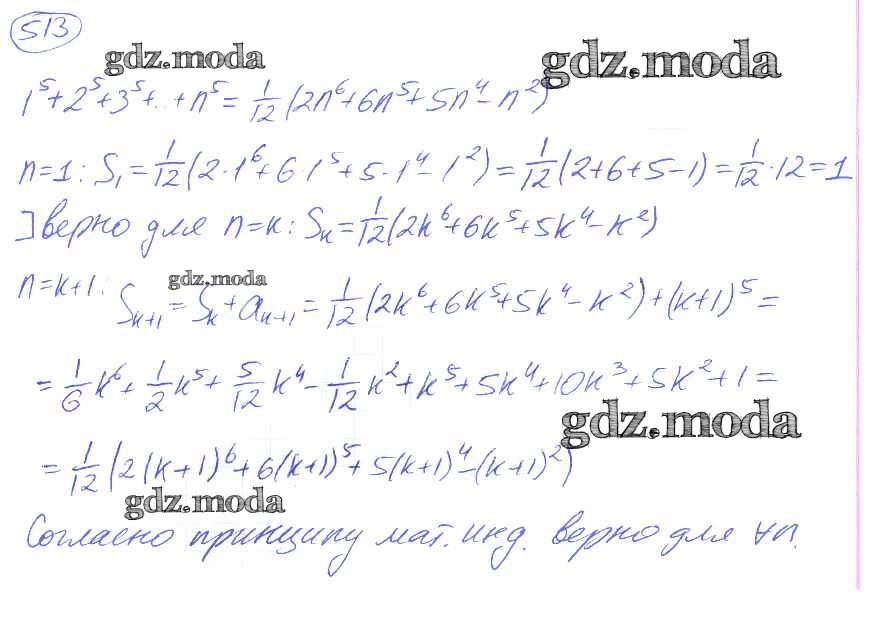 513
gdz.moda gdz.moda
1⁵+2⁵+3⁵+..+n⁵=1/12(2n⁶+6n⁵+5n⁴-n²)
n=1: S₁=1/12(2·1⁶+6·1⁵+5·1⁴-1²)=1/12(2+6+5-1)=1/12·12=1
] верно для n=k: Sₖ=1/12(2k⁶+6k⁵+5k⁴-k²)
gdz.moda
n=k+1: Sₖ₊₁=Sₖ+aₖ₊₁=1/12(2k⁶+6k⁵+5k⁴-k²)+(k+1)⁵=
=1/6k⁶+1/2k⁵+5/12k⁴-1/12k²+k⁵+5k⁴+10k³+5k²+1=
gdz.moda
=1/12(2(k+1)⁶+6(k+1)⁵+5(k+1)⁴-(k+1)²)
gdz.moda
Согласно принципу мат. инд. верно для ∀n.